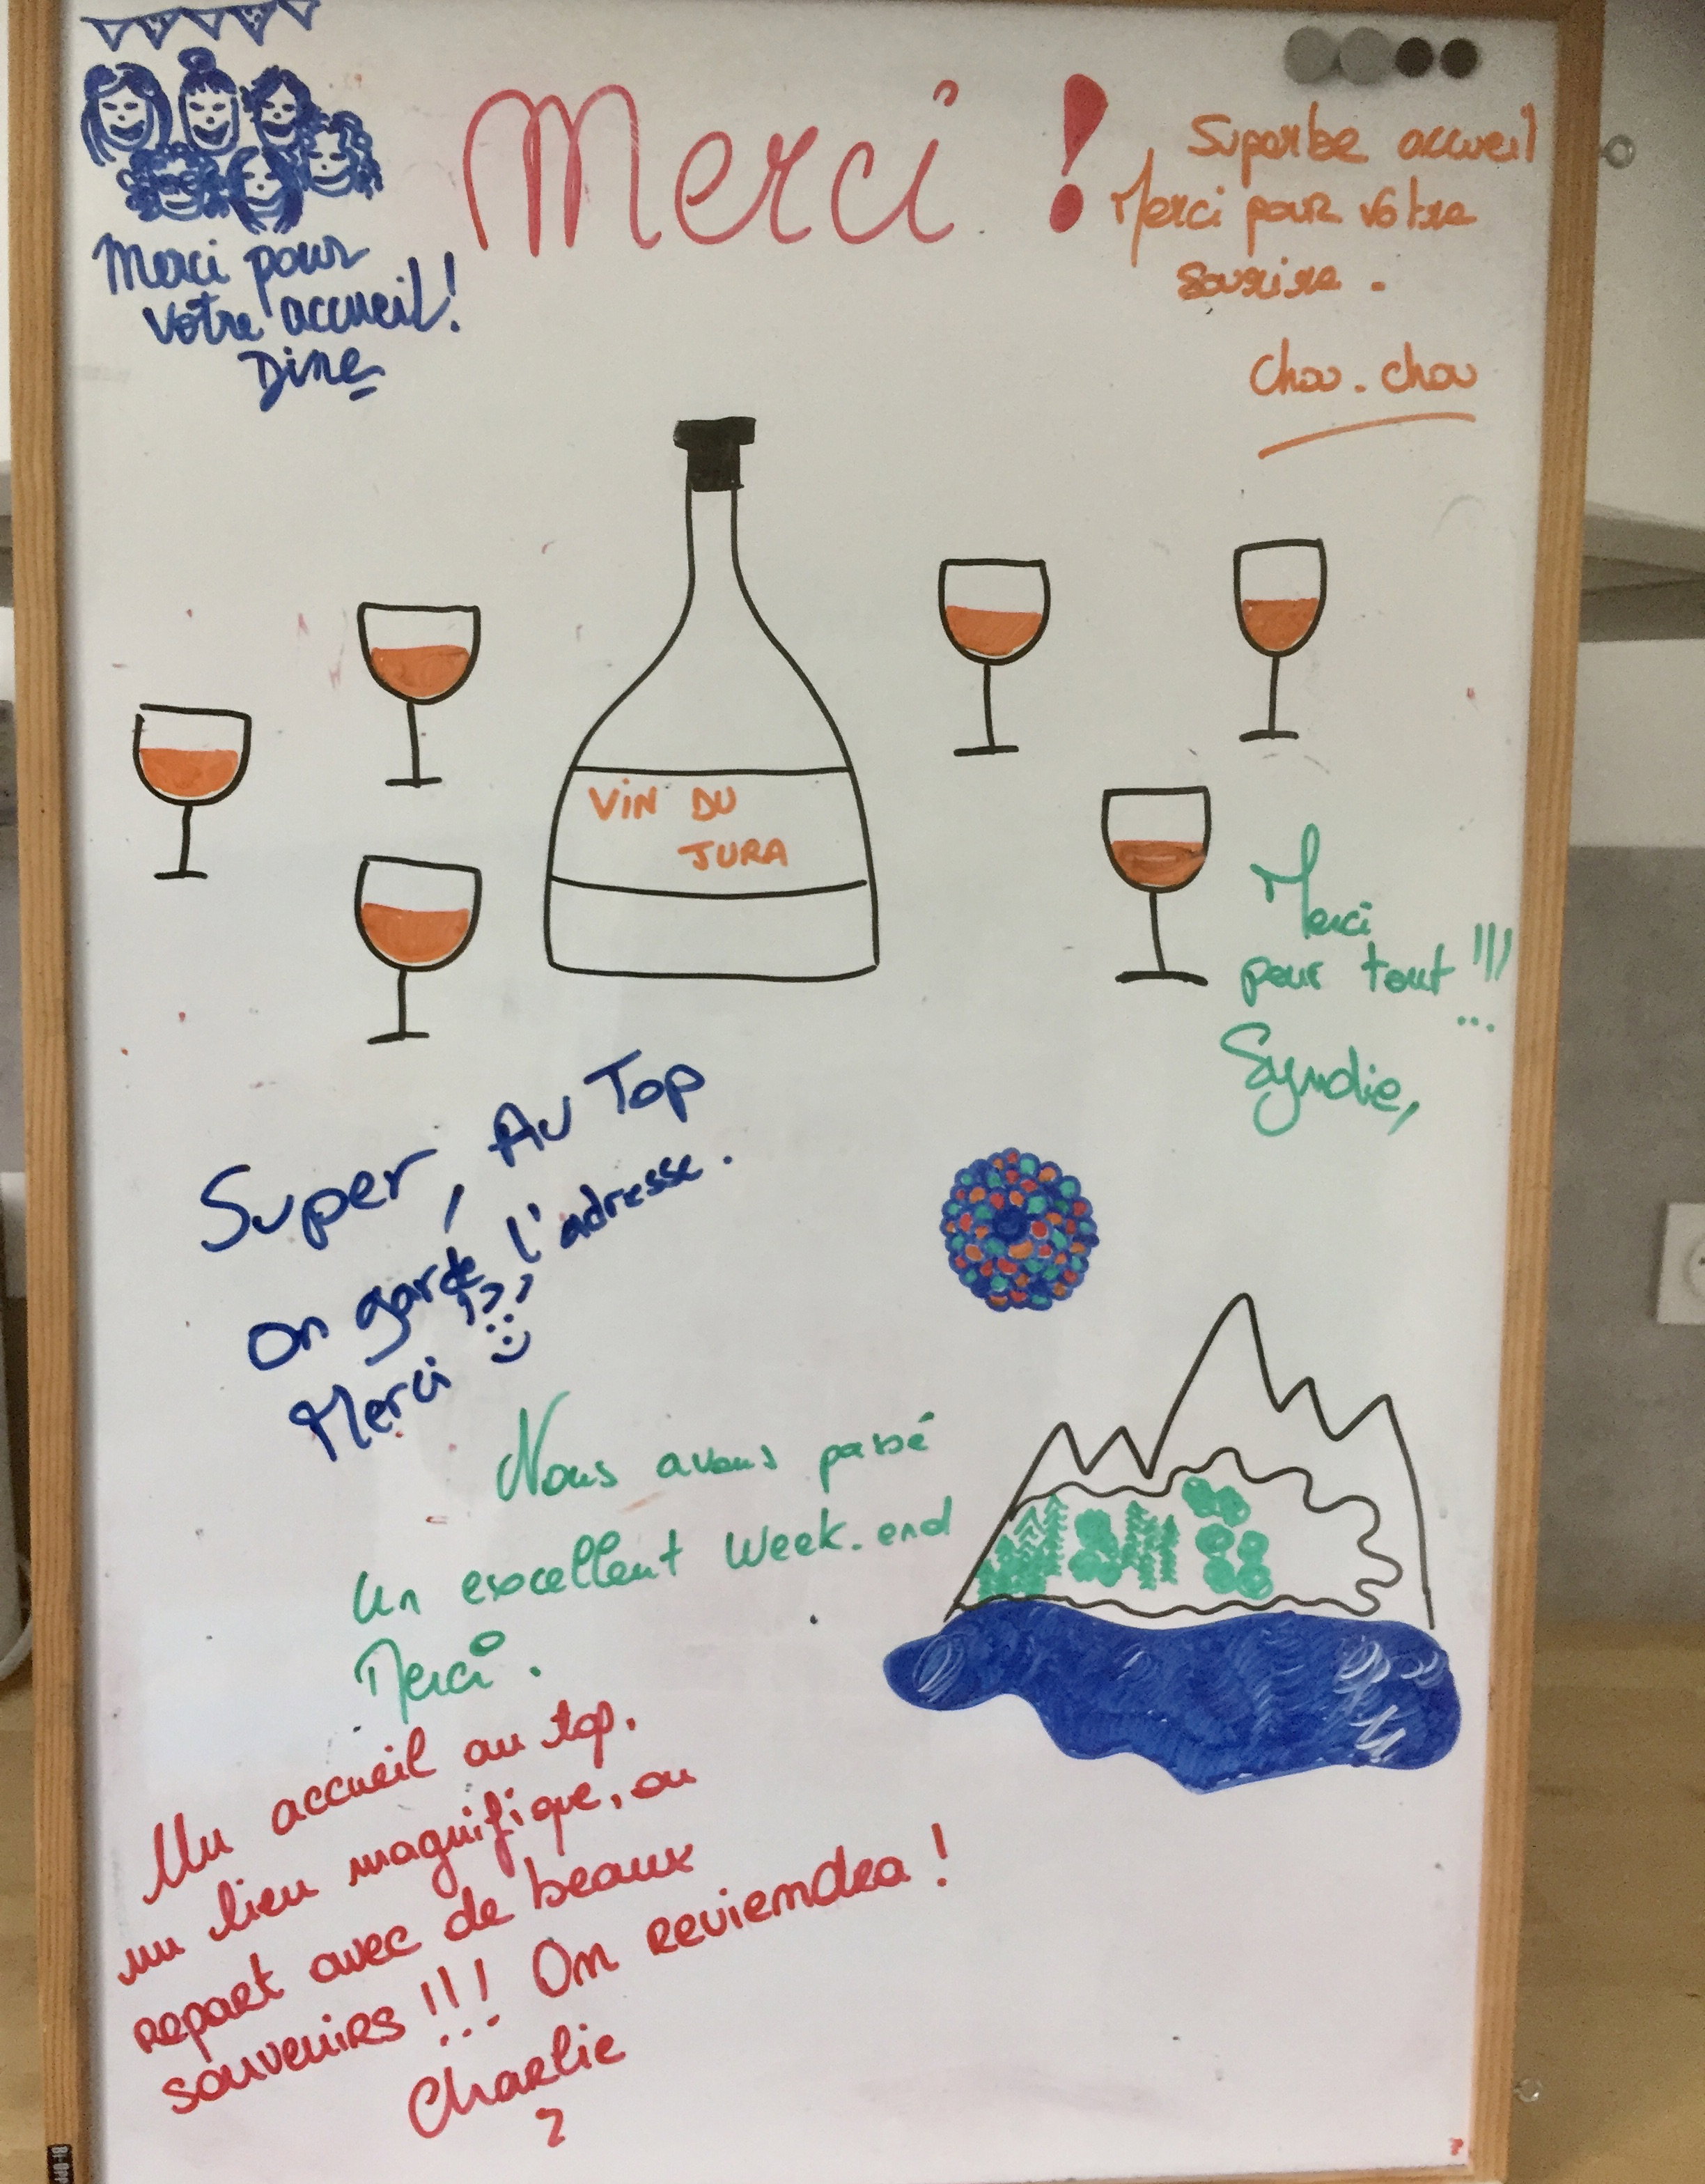 Merci !
Merci pour
votre accueil !
Dine
Superbe accueil
Merci pour votre
sourire .
chou . chou
VIN DU
JURA
Merci
pour tout !!!
Syndie,
Super, Au Top
on garde l'adresse.
Merci
Nous avons passé
un excellent week.end
Merci .
Un accueil au top.
un lieu magnifique, on
repart avec de beaux
souvenirs !!! On reviendra !
Charlie